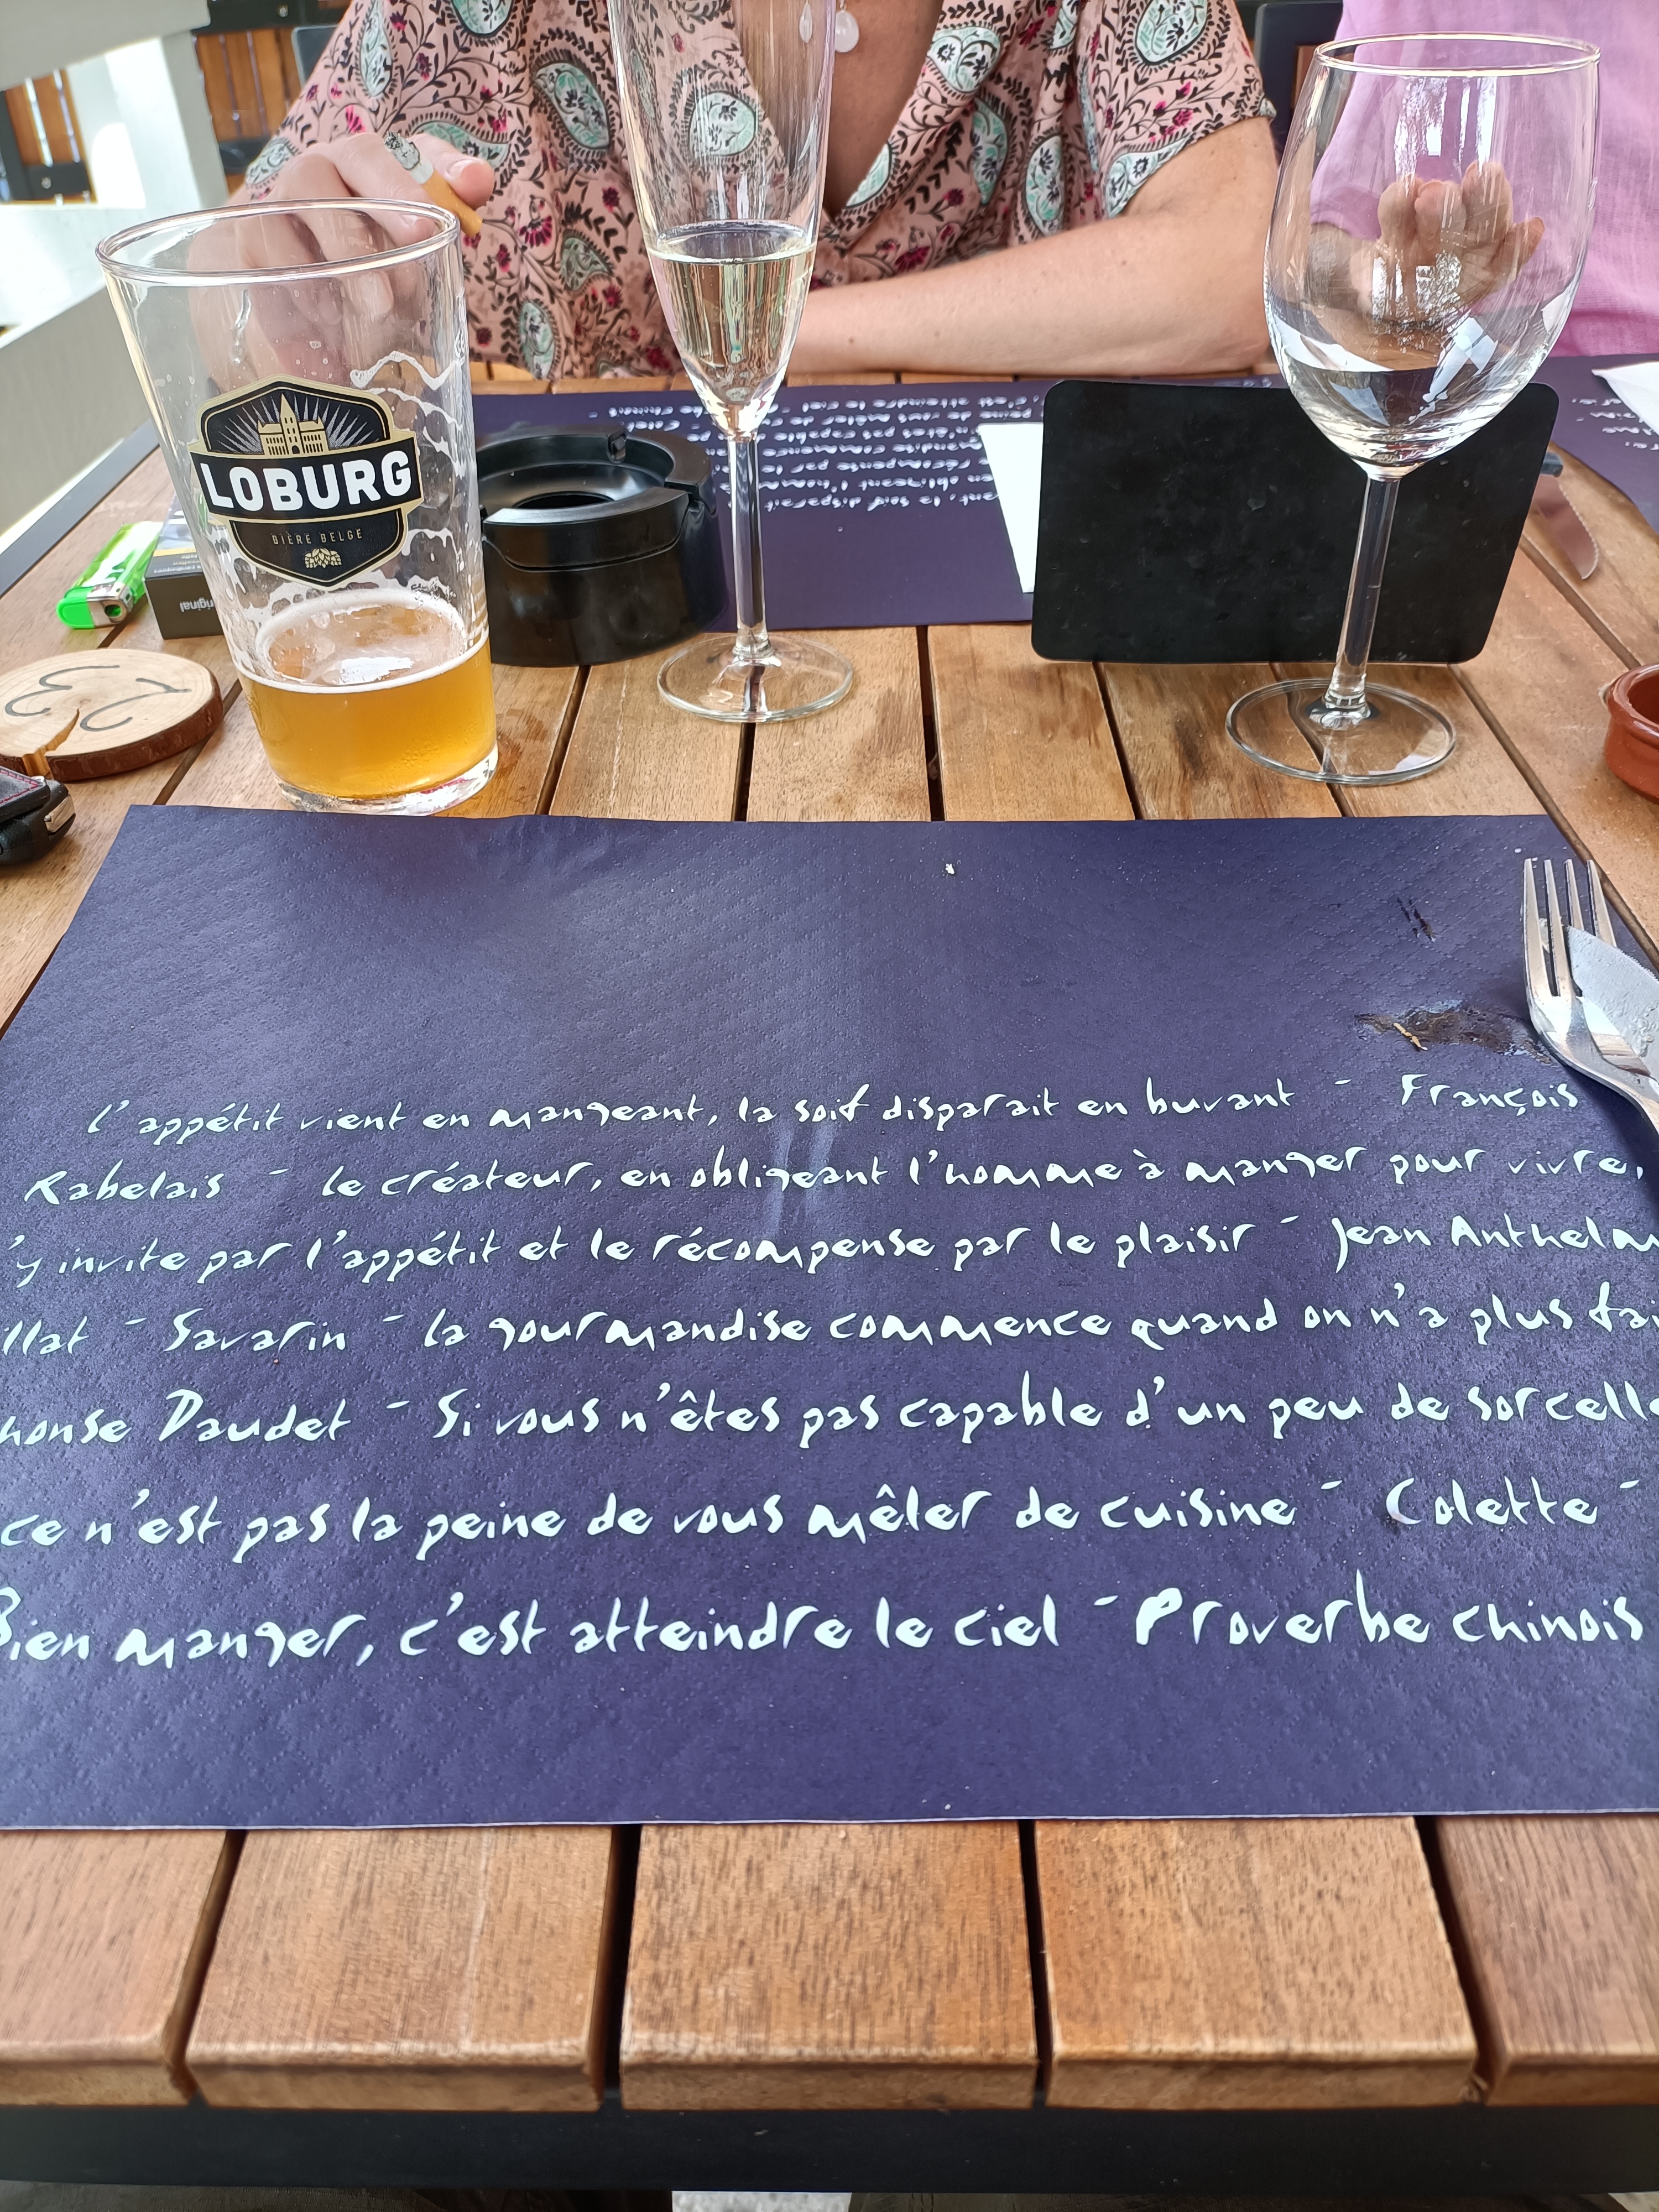 LOBURG
BIÈRE BELGE
original
23
l'appétit vient en mangeant, la soif disparait en buvant - François
Rabelais - le créateur, en obligeant l'homme à manger pour vivre,
'y invite par l'appétit et le récompense par le plaisir - Jean Anthelm
illat - Savarin - la gourmandise commence quand on n'a plus fai
honse Daudet - Si vous n'êtes pas capable d'un peu de sorcelle
ce n'est pas la peine de vous mêler de cuisine - Colette -
Bien manger, c'est atteindre le ciel - Proverbe chinois